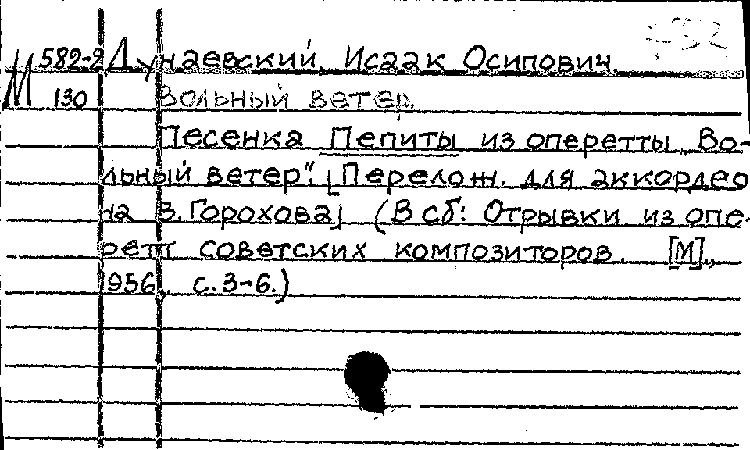 М 582-2 Дунаевский, Исаак Осипович.
130 Вольный ветер.
Песенка Пепиты из оперетты „Во-
льный ветер". [Перелож. для аккордео
на В. Горохова] (В сб: Отрывки из опе-
ретт советских композиторов. [М].,
1956, с. 3-6.)